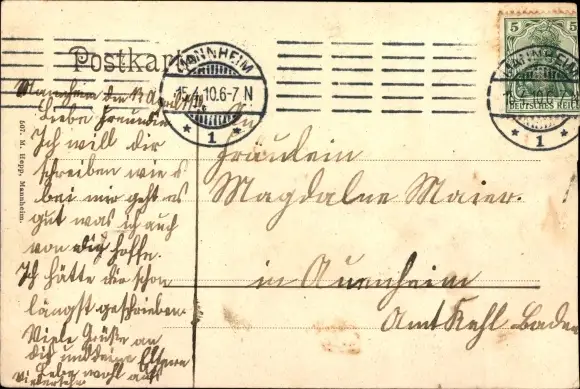 Postkarte
MANNHEIM
15.4.10.6-7 N
* 1 *
5 5
DEUTSCHES REICH
MANNHEIM
* 1 *
Mannheim den April
Liebe Freundin
Ich will dir
schreiben wie es
bei mir geht es
gut was ich auch
von dir hoffe.
Ich hätte dir schon
längst geschrieben
Viele Grüße an
dich und deine Eltern
Lebe wohl auf
Wiedersehn
507. M. Hepp, Mannheim.
Fräulein
Magdalne Maier.
in Auenheim
Amt Kehl Baden